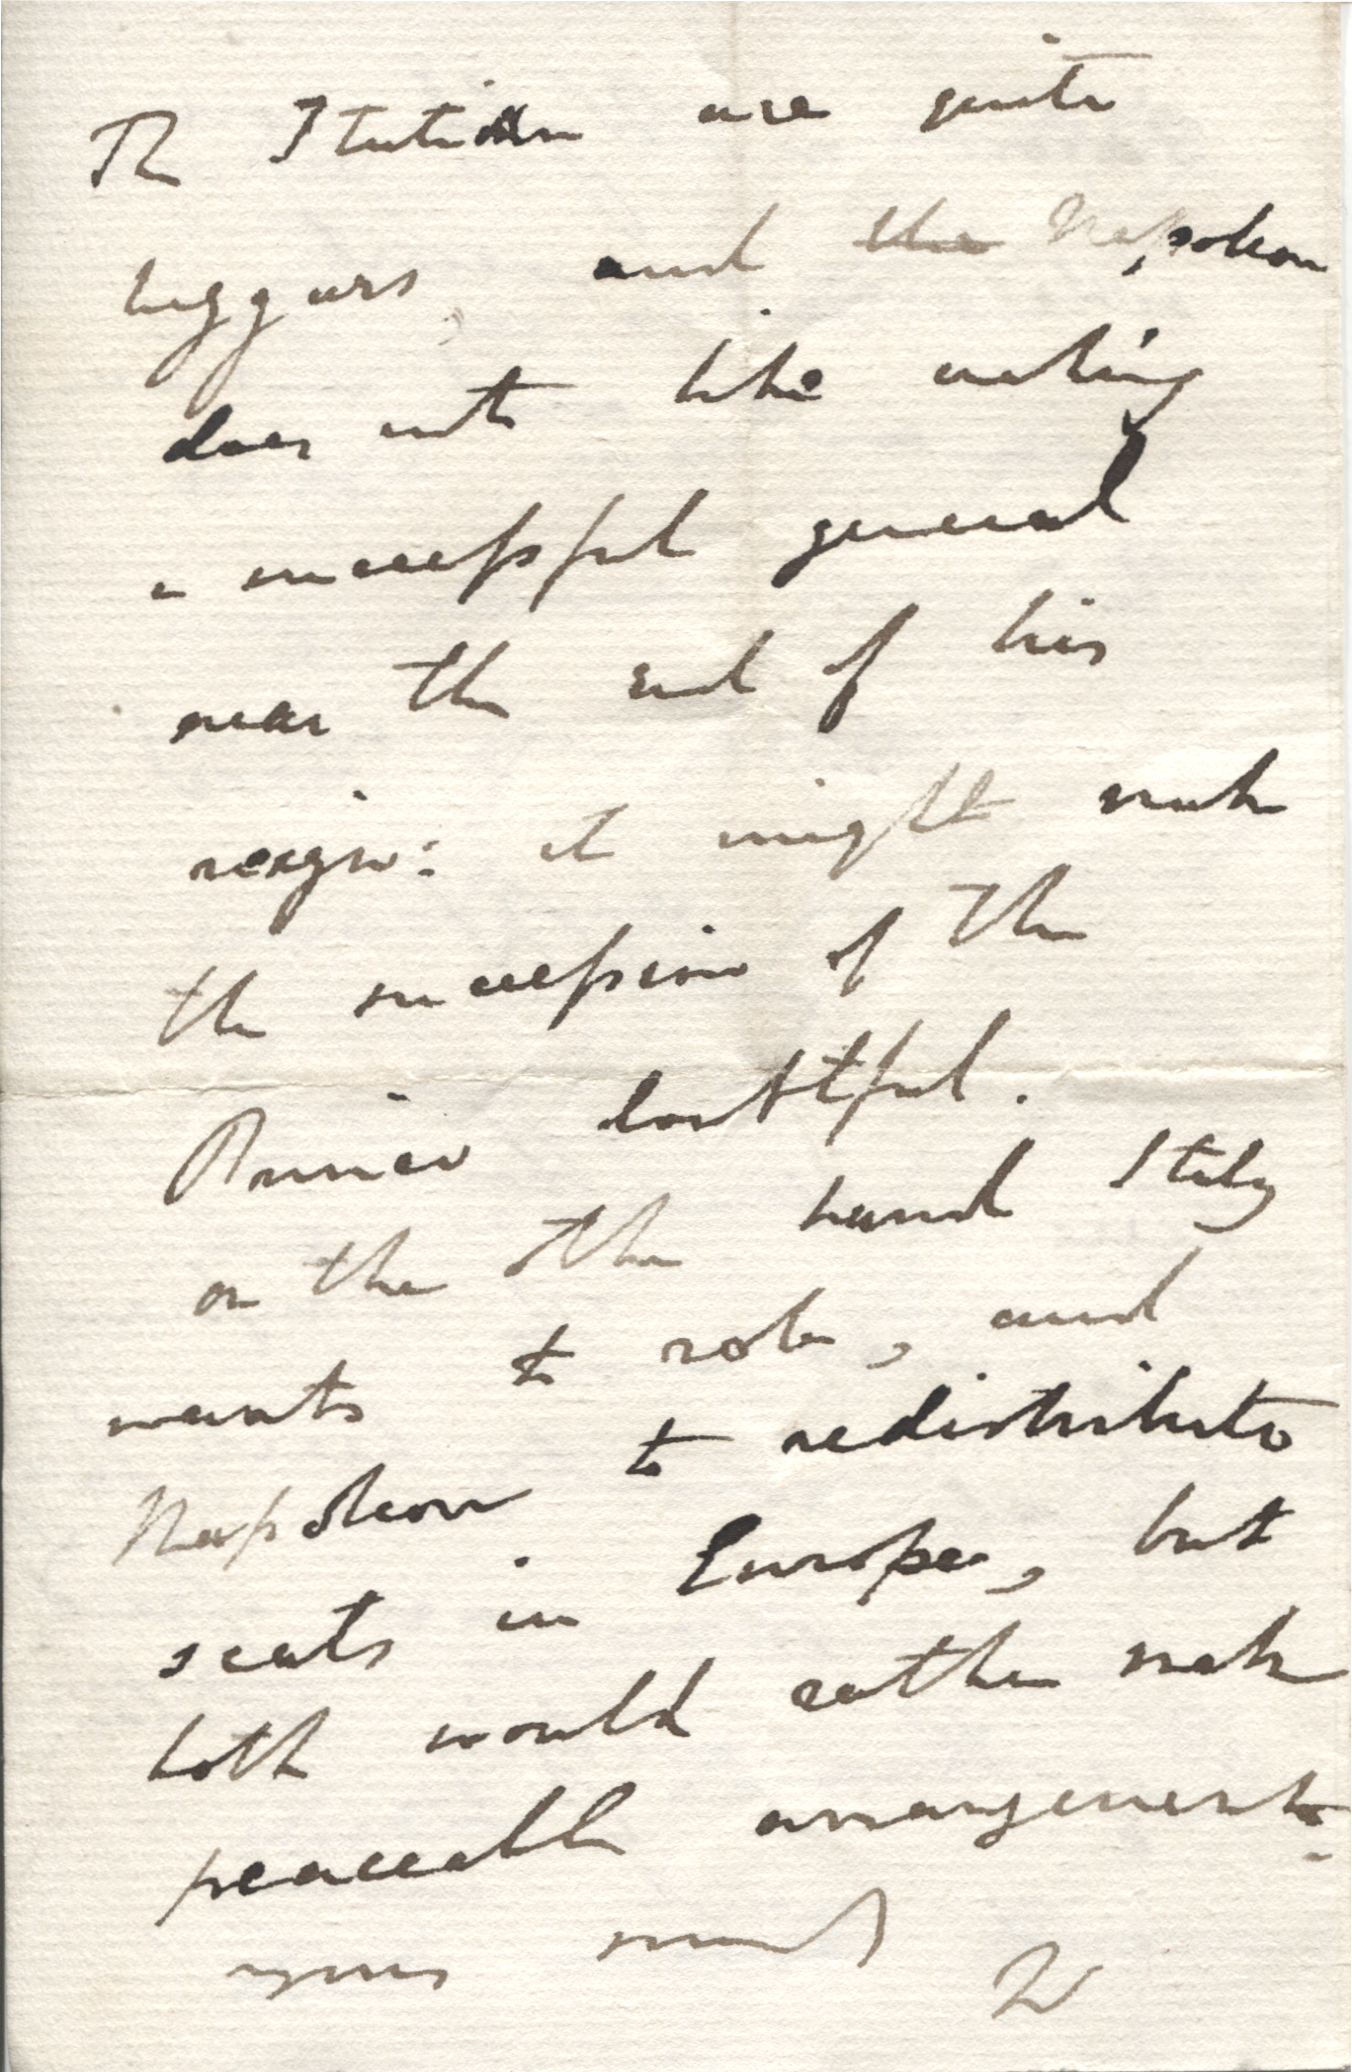 The Italians are quite
beggars, and the Napoleon
does not like making
a successful general
near the end of his
reign: it might make
the succession of the
Prince doubtful.
On the other hand Italy
wants to rob, and
Napoleon to redistribute
seats in Europe, but
both would rather make
peaceable arrangements.
yours
W